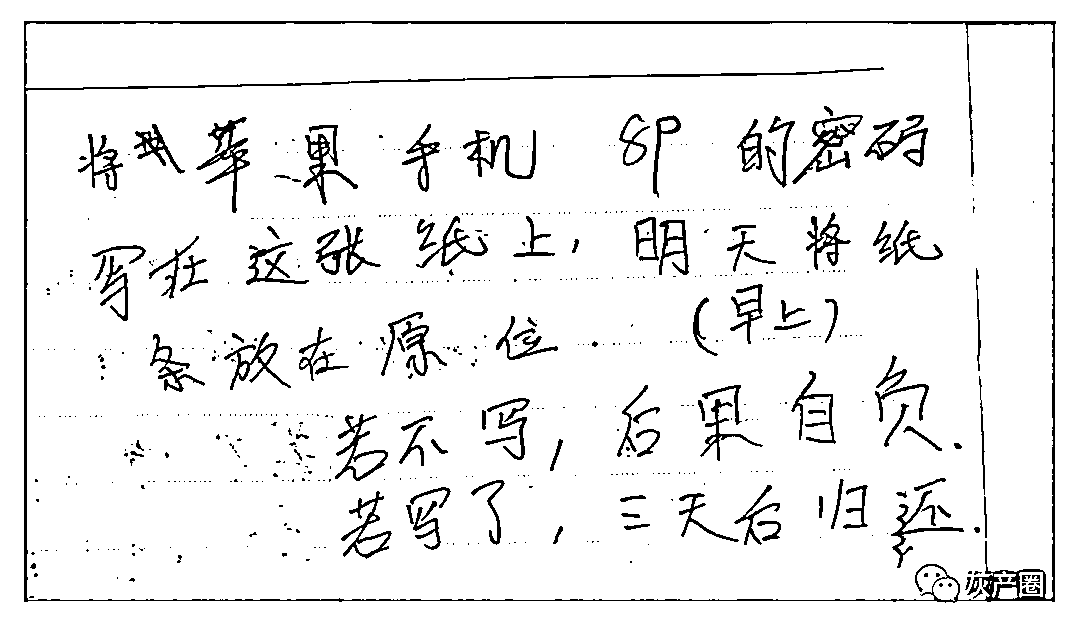 将苹果手机 8P 的密码
写在这张纸上，明天将纸
(早上)
条放在原位.
若不写，后果自负.
若写了，三天后归还.
灰产圈